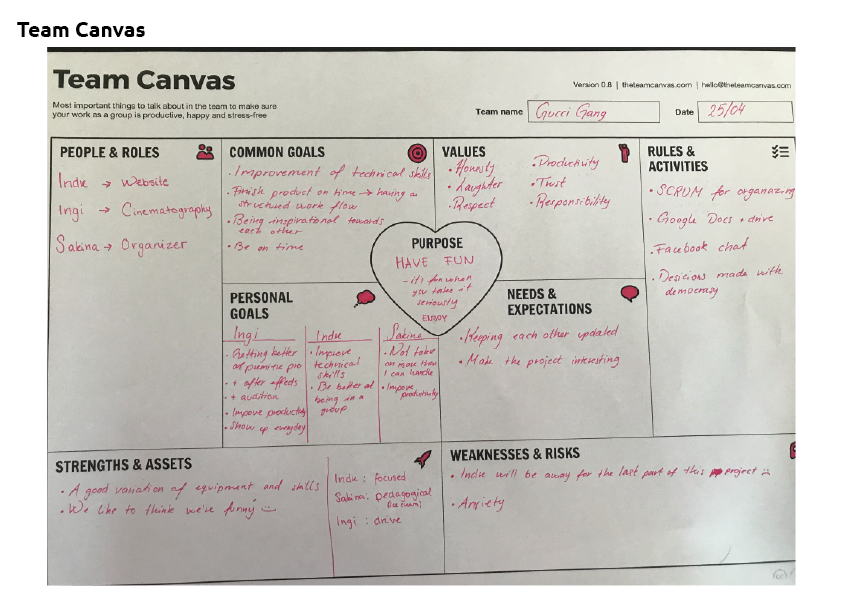 Team Canvas
Team Canvas
Most important things to talk about in the team to make sure
your work as a group is productive, happy and stress-free
Version 0.8 | theteamcanvas.com | hello@theteamcanvas.com
Team name Gucci Gang
Date 25/04
PEOPLE & ROLES
Indre → Website
Ingi → Cinematography
Sakina → Organizer
COMMON GOALS
• Improvement of technical skills
• Finish product on time → having a
structured work flow
• Being inspirational towards
each other
• Be on time
VALUES
• Honesty
• Laughter
• Respect
• Productivity
• Trust
• Responsibility
RULES &
ACTIVITIES
• SCRUM for organazing
• Google Docs + drive
• Facebook chat
• Desicions made with
democrasy
PURPOSE
HAVE FUN
- it's fun when
you take it
seriously
ENJOY
PERSONAL
GOALS
Ingi
• Getting better
at premiere pro
• + after effects
• + audition
• Impove productivity
• Show up everyday
Indre
• Improve
technical
skills
• Be better at
being in a
group
Sakina
• Not take
on more than
I can handle
• Improve
productivity
NEEDS &
EXPECTATIONS
• Keeping each other updated
• Make the project interesting
STRENGTHS & ASSETS
• A good variation of equipment and skills
• We like to think we're funny
Indre : focused
Sakina: pedagogical
Ingi : drive
WEAKNESSES & RISKS
• Indre will be away for the last part of this project
• Anxiety